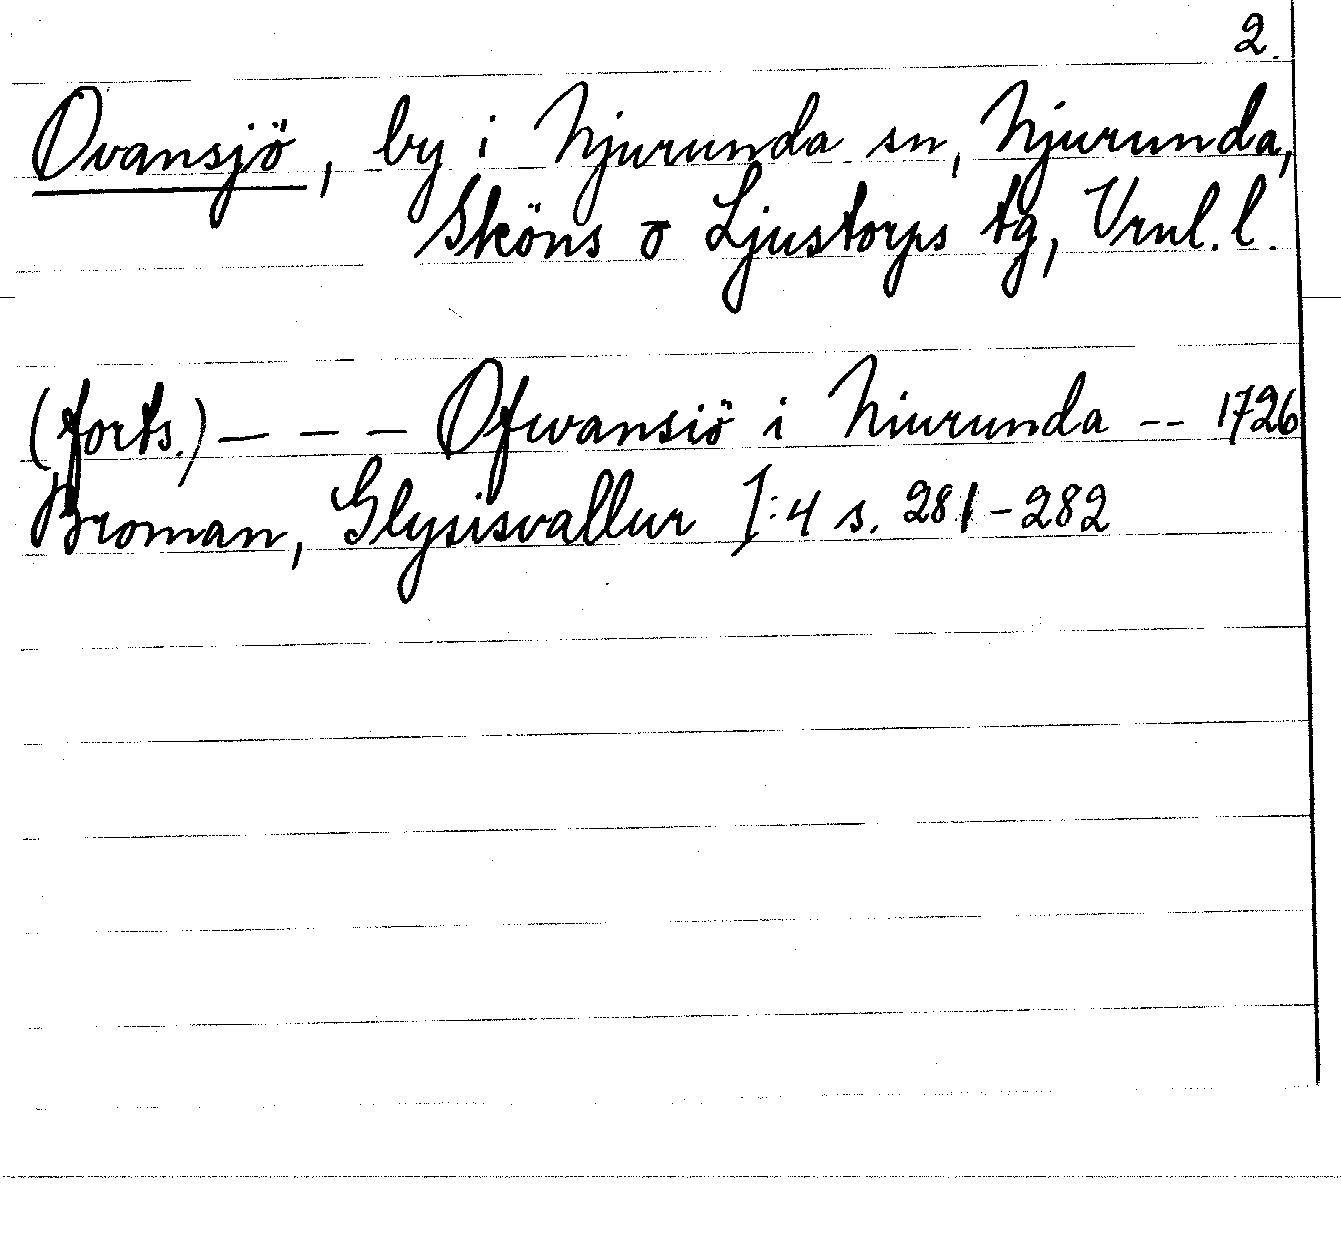 2.
Ovansjö, by i Njurunda sn, Njurunda,
Sköns o Ljustorps tg, Vrnl. l.
(forts.) – – – Ofwansiö i Niurunda -- 1726
Broman, Glysisvallur I:4 s. 281-282